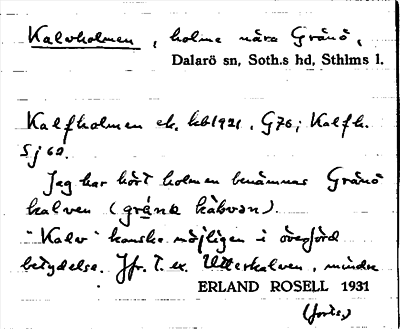 Kalvholmen, holme nära Granö,
Dalarö sn, Soth.s hd, Sthlms l.
Kalfholmen ek. kbl 1921. G76; Kalfh.
Sj 62.
Jag har hört holmen benämnas Granö
kalven (grána kàlvən).
"Kalv" kanske möjligen i överförd
betydelse. Jfr. t. ex. Utterkalven, mindre
ERLAND ROSELL 1931
(forts.)